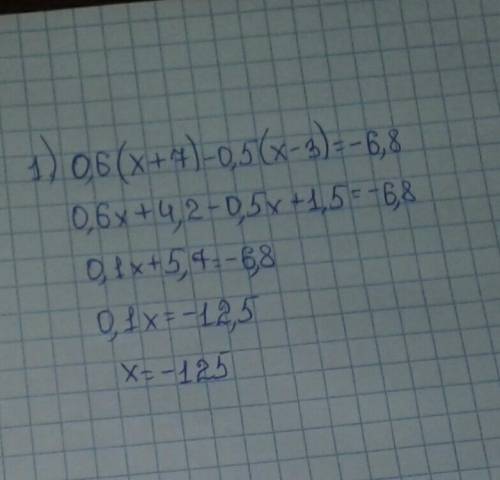 1) 0,6(x+7)-0,5(x-3)=-6,8
0,6x+4,2-0,5x+1,5=-6,8
0,1x+5,7=-6,8
0,1x=-12,5
x=-125